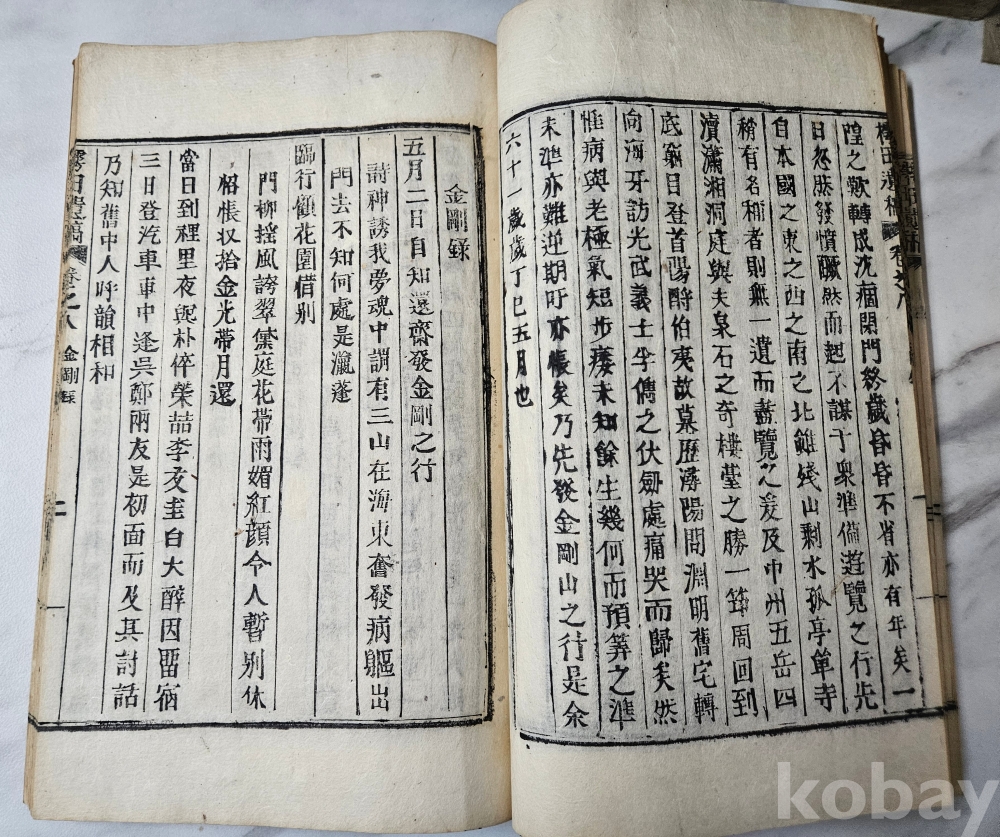 惶之欮轉成沈痼閉門終歲昏昏不省亦有年矣一
日忽然發憤蹶然而起不謀于衆準備遊覽之行先
自本國之東之西之南之北雖殘山剩水孤亭單寺
稍有名稱者則無一遺而盡覽之爰及中州五岳四
瀆瀟湘洞庭與夫泉石之奇樓臺之勝一筇周回到
底窮目登首陽酹伯夷故墓歷潯陽問淵明舊宅轉
向海牙訪光武義士李儁之伏劒處痛哭而歸矣然
惟病與老極氣短步痿未知餘生幾何而預筭之準
未準亦難逆期吁亦悵矣乃先發金剛山之行是余
六十一歲歲丁巳五月也
金剛錄
五月二日自知還齋發金剛之行
詩神誘我夢魂中謂有三山在海東奮發病軀出
門去不知何處是瀛蓬
臨行顧花園惜別
門柳搖風誇翠黛庭花帶雨媚紅顔今人暫別休
怊悵収拾金光帶月還
當日到裡里夜與朴倅榮喆李友圭白大醉因留宿
三日登汽車車中逢吳鄭兩友是初面而及其討話
乃知舊中人呼韻相和
遺稿 卷之八 金剛錄 二
kobay